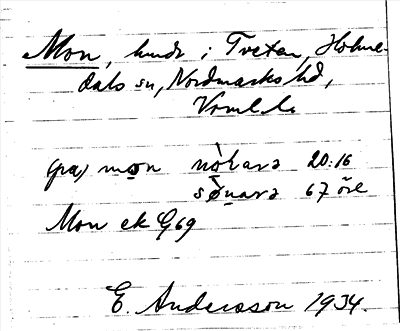 Mon, hmdr i Tveten, Holme-
dals sn, Nordmarks hd,
Vrml. l.
(pa) mon nòLara 20:16
sønara 67 öre
Mon ek G69
E. Andersson 1934.